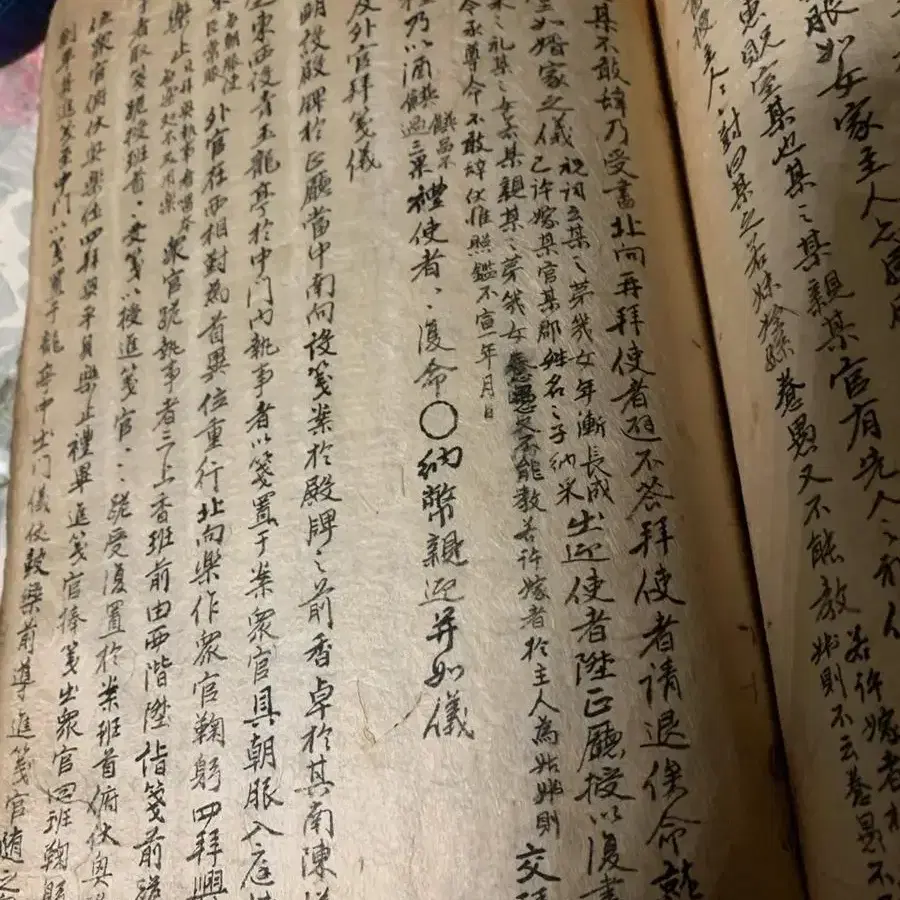 服如女家主人公服
惠貺室某也某之某親某官有先人之礼
若許嫁者
主人對曰某之若妹姪孫惷愚又不能教姊則不云惷愚不
某不敢辞乃受書北向再拜使者避不答拜使者請退俟命
如婚家之儀
祝詞云某之第幾女年漸長成
已許嫁某官某郡姓名之子納采
出迎使者陞正廳授以復書
采之礼某之女若某親某之第幾女惷愚又不能教若許嫁者於主人為姑姊則
令承尊命不敢辞伏惟照鑑不宣年月日
交
乃以酒饌
饌品不
過三果
禮使者〻復命〇納幣親迎并如儀
及外官拜箋儀
明設殿牌於正廳當中南向設箋案於殿牌之前香卓於其南陳
東西設青玉龍亭於中門內執事者以箋置于案衆官具朝服入庭
外官在西相對為首異位重行北向樂作衆官鞠躬四拜興
樂止
衆官跪執事者三上香班前由西階陞詣箋前
者取箋跪授班首〻受箋以授進箋官〻跪受復置於案班首俯伏興
位衆官俯伏興樂作四拜興平身樂止禮畢進箋官捧箋出衆官回班鞠躬
中門以箋置于龍亭中出門儀仗鼓樂前導進箋官随之